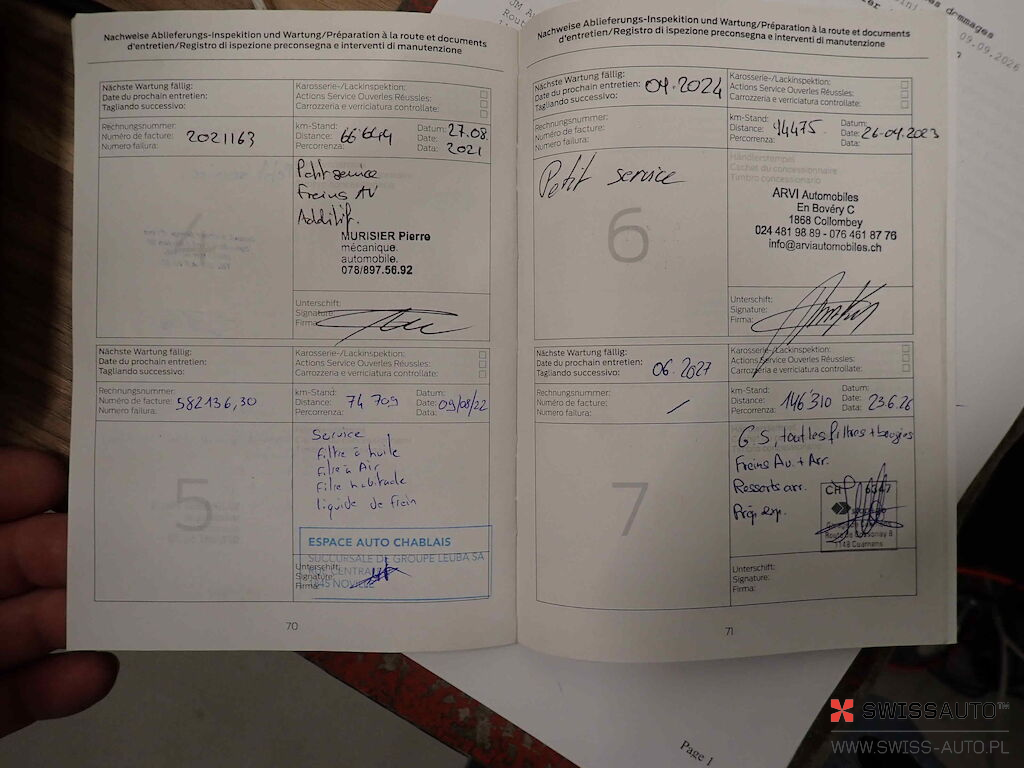 drmmages
09.09.2026
Nachweise Ablieferungs-Inspekition und Wartung/Préparation à la route et documents
d'entretien/Registro di ispezione preconsegna e interventi di manutenzione
Nächste Wartung fällig:
Date du prochain entretien:
Tagliando successivo:
Karosserie-/Lackinspektion:
Actions Service Ouverles Réussles:
Carrozzeria e verriciatura controllate:
Rechnungsnummer:
Numéro de facture: 2021163
Numero failura:
km-Stand:
Distance:
Percorrenza:
Datum: 27.08
Date:
Data: 2021
4
Petit service
Freins AV
Additif.
MURISIER Pierre
mécanique.
automobile.
078/897.56.92
Unterschift:
Signature:
Firma:
Nächste Wartung fällig:
Date du prochain entretien:
Tagliando successivo:
Karosserie-/Lackinspektion:
Actions Service Ouverles Réussles:
Carrozzeria e verriciatura controllate:
Rechnungsnummer:
Numéro de facture: 582136,30
Numero failura:
km-Stand:
Distance: 74 709
Percorrenza:
Datum:
Date: 09/08/22
Data:
5
Service
Filtre à huile
Filre à Air
Filre habitacle
liquide de frein
ESPACE AUTO CHABLAIS
SUCCURSALE DE GROUPE LEUBA SA
Unterschift:
Signature:
Firma:
70
Nachweise Ablieferungs-Inspekition und Wartung/Préparation à la route et documents
d'entretien/Registro di ispezione preconsegna e interventi di manutenzione
Nächste Wartung fällig:
Date du prochain entretien: 04.2024
Tagliando successivo:
Karosserie-/Lackinspektion:
Actions Service Ouverles Réussles:
Carrozzeria e verriciatura controllate:
Rechnungsnummer:
Numéro de facture:
Numero failura:
km-Stand:
Distance: 94475
Percorrenza:
Datum:
Date: 26.04.2023
Data:
Petit service
6
Händlerstempel
Cachet du concessionnaire
Timbro concessionario
ARVI Automobiles
En Bovéry C
1868 Collombey
024 481 98 89 - 076 461 87 76
info@arviautomobiles.ch
Unterschift:
Signature:
Firma:
Nächste Wartung fällig:
Date du prochain entretien:
Tagliando successivo: 06.2027
Karosserie-/Lackinspektion:
Actions Service Ouverles Réussles:
Carrozzeria e verriciatura controllate:
Rechnungsnummer:
Numéro de facture: /
Numero failura:
km-Stand:
Distance: 146'310
Percorrenza:
Datum:
Date: 23.6.26
Data:
7
G.S, tout les filtres + bougies
Freins Av. + Arr.
Ressorts arr.
Prép exp.
1148 Cuarnens
Unterschift:
Signature:
Firma:
71
Page 1
SWISSAUTO™
WWW.SWISS-AUTO.PL